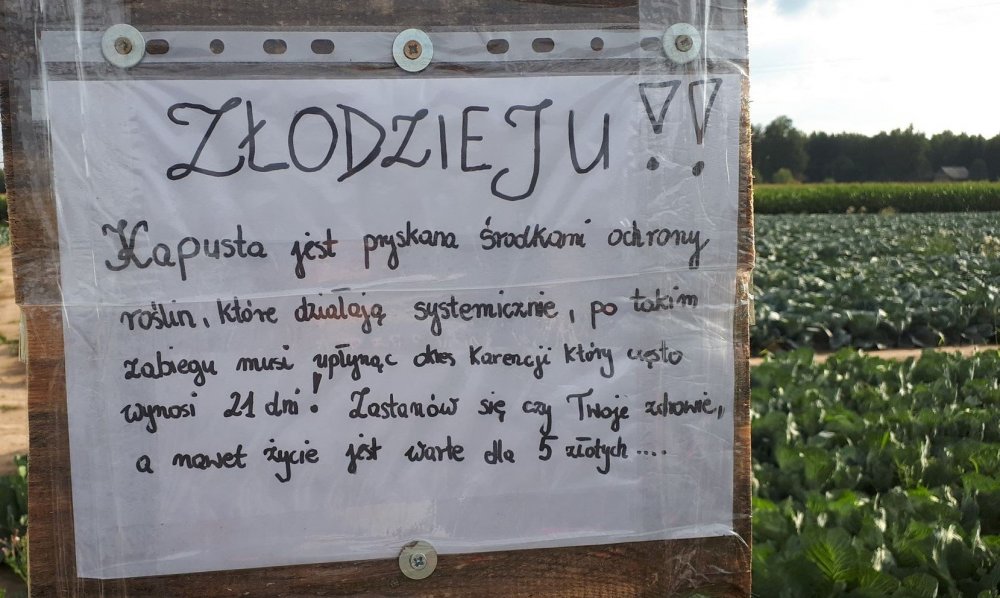 ZŁODZIEJU!!
Kapusta jest pryskana środkami ochrony
roślin, które działają systemicznie, po takim
zabiegu musi upłynąć okres karencji który często
wynosi 21 dni! Zastanów się czy Twoje zdrowie,
a nawet życie jest warte dla 5 złotych....